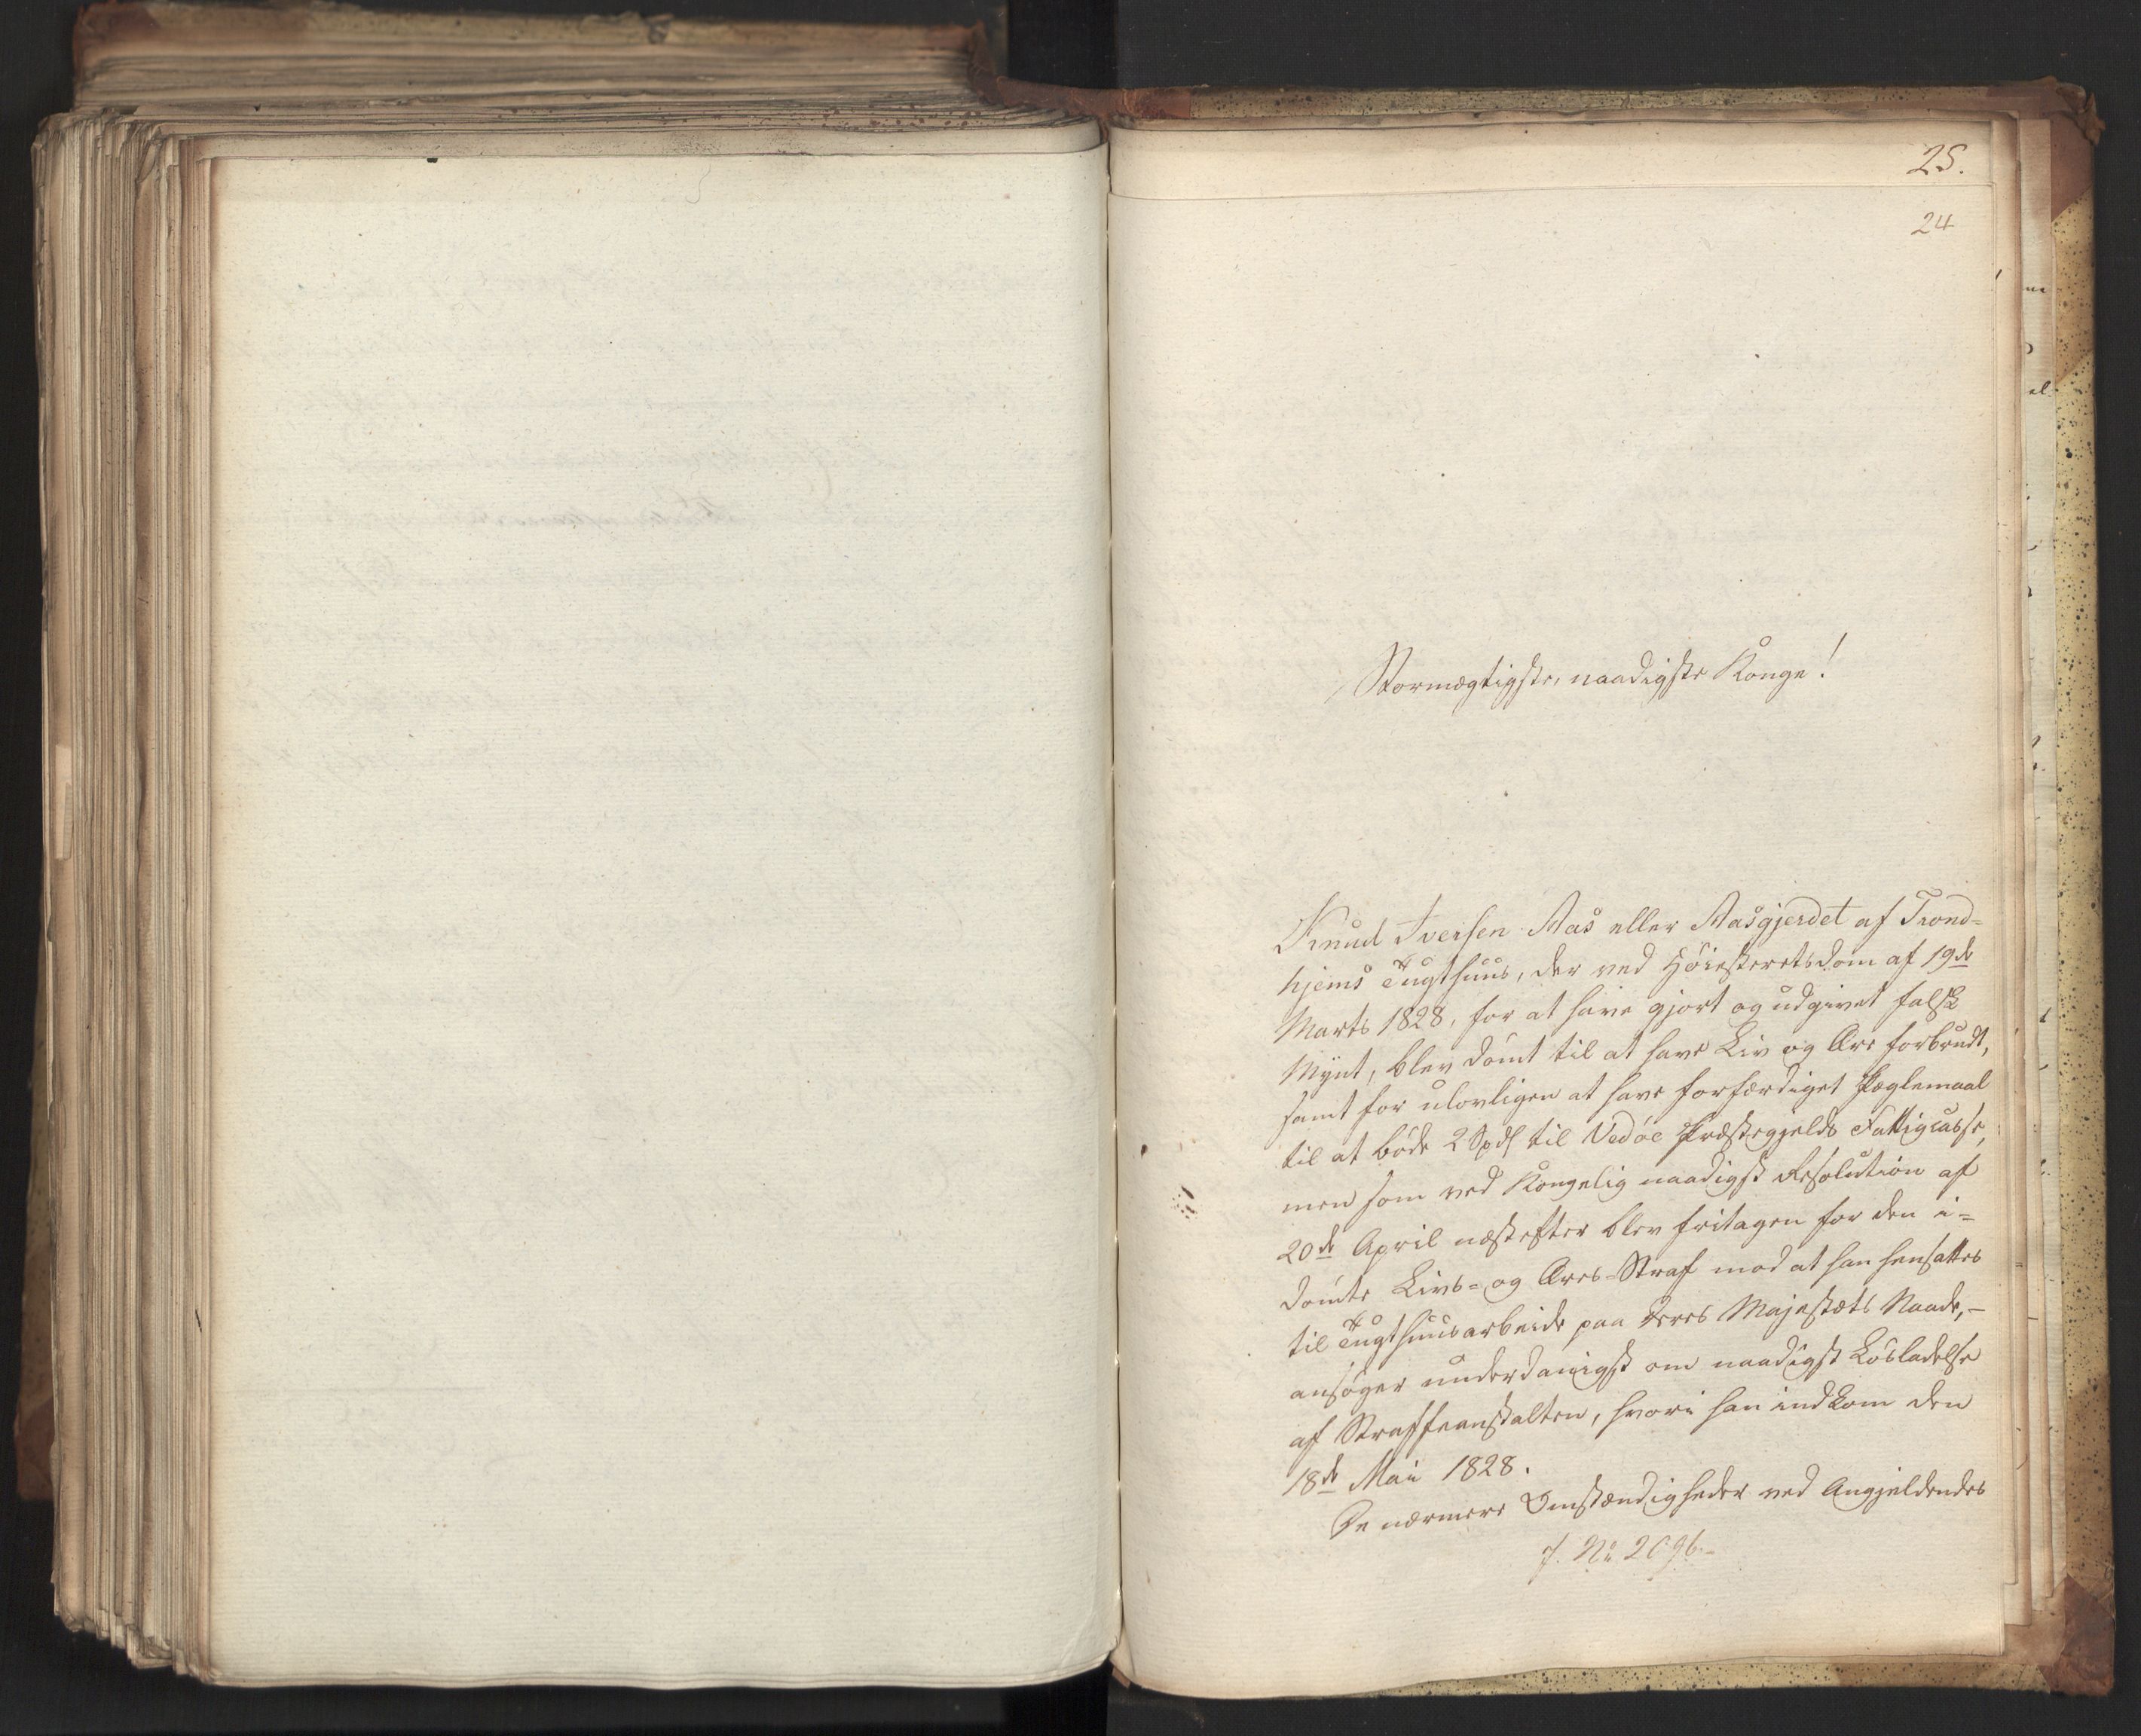 25.
24
Stormægtigste, naadigste Konge!
Knud Iversen Aas eller Aasgjerdet af Trond-
hjems Tugthuus, der ved Høiesteretsdom af 19de
Marts 1828, for at have gjort og udgivet falsk
Mynt, blev dømt til at have Liv og Ære forbrudt,
samt for ulovligen at have forfærdiget Pæglemaal
til at bøde 2 Spdl til Vedøe Præstegjelds Fattigcasse,
men som ved Kongelig naadigst Resolution af
20de April næstefter blev fritagen for den i-
dømte Livs- og Æres-Straf mod at han hensattes
til Tugthuusarbeide paa Deres Majestæts Naade,-
ansøger underdanigst om naadigst Løsladelse
af Straffeanstalten, hvori han indkom den
18de Mai 1828.
De nærmere Omstændigheder ved Angjeldendes
J. No 2096.-